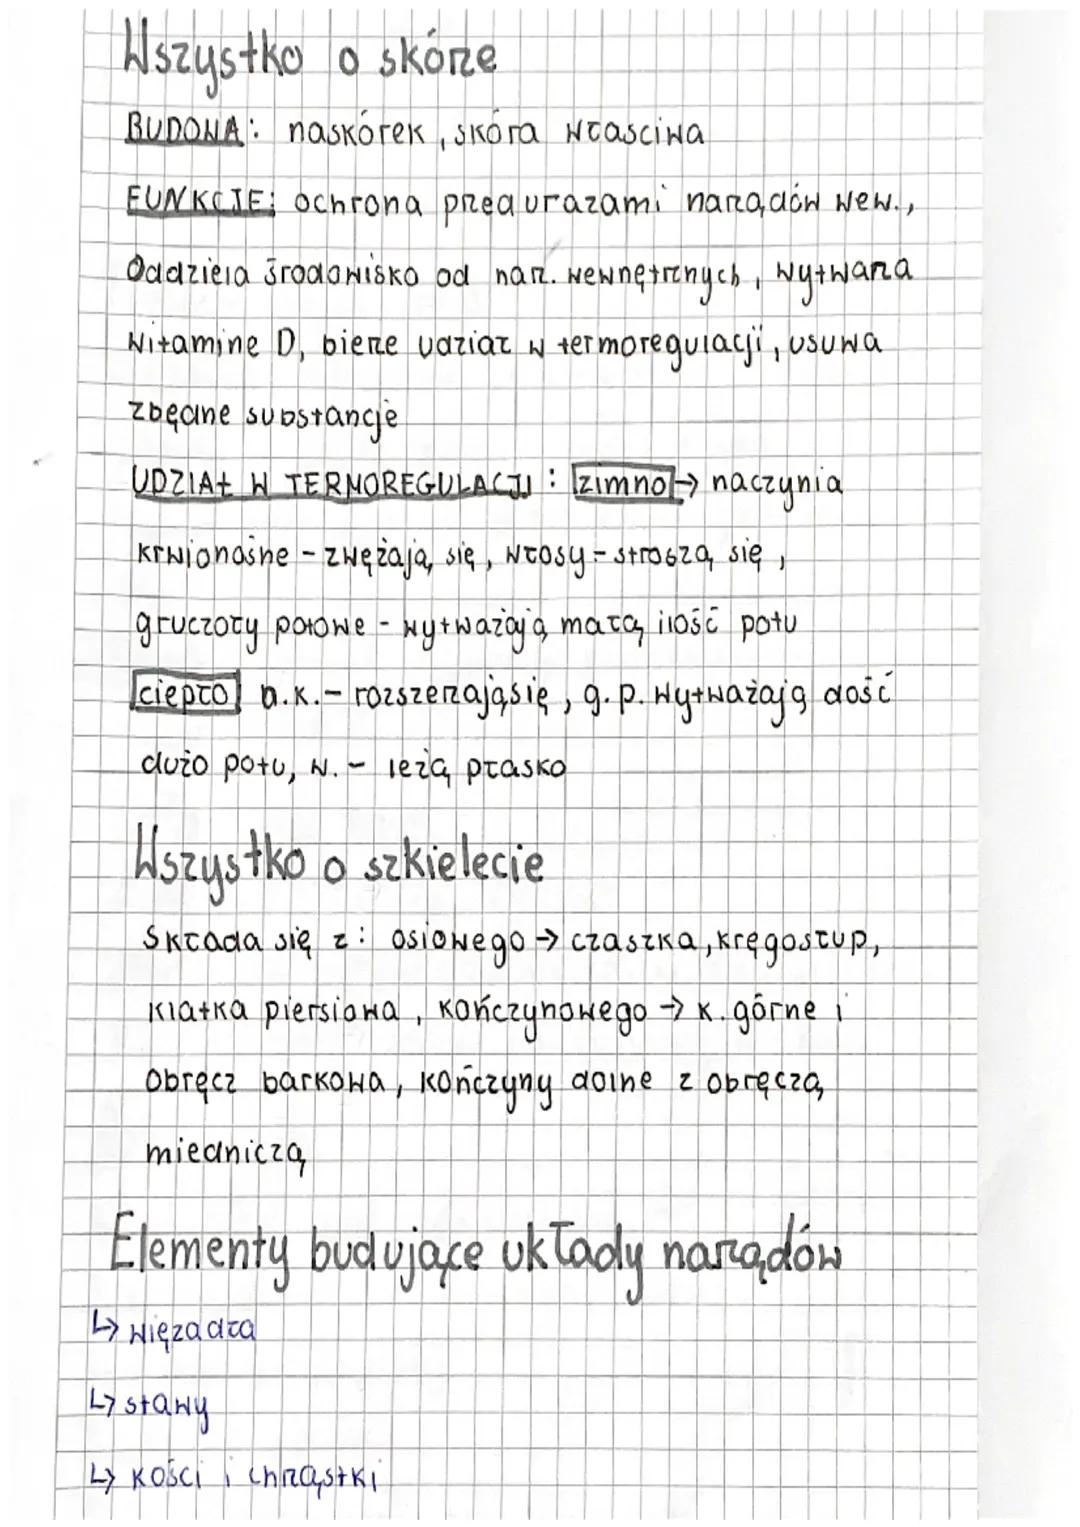 Wszystko o skórze
BUDOWA: naskórek, skóra właściwa
FUNKCJE: ochrona przed urazami narządów wew.,
Oddziela środowisko od narz. wewnętrznych, wytwarza
witamine D, bierze udział w termoregulacji, usuwa
zbędne substancje
UDZIAŁ W TERMOREGULACJI: zimno → naczynia
krwionośne - zwężają się, włosy - stroszą się,
gruczoły potowe - wytważają małą ilość potu
ciepło n.k. - rozszerzają się, g.p. wytważają dość
dużo potu, w. - leżą płasko
Wszystko o szkielecie
Składa się z: osiowego → czaszka, kręgosłup,
klatka piersiowa, kończynowego → k. górne i
obręcz barkowa, kończyny dolne z obręczą
miedniczą
Elementy budujące układy narządów
↳ więzadła
↳ stawy
↳ kości i chrząstki